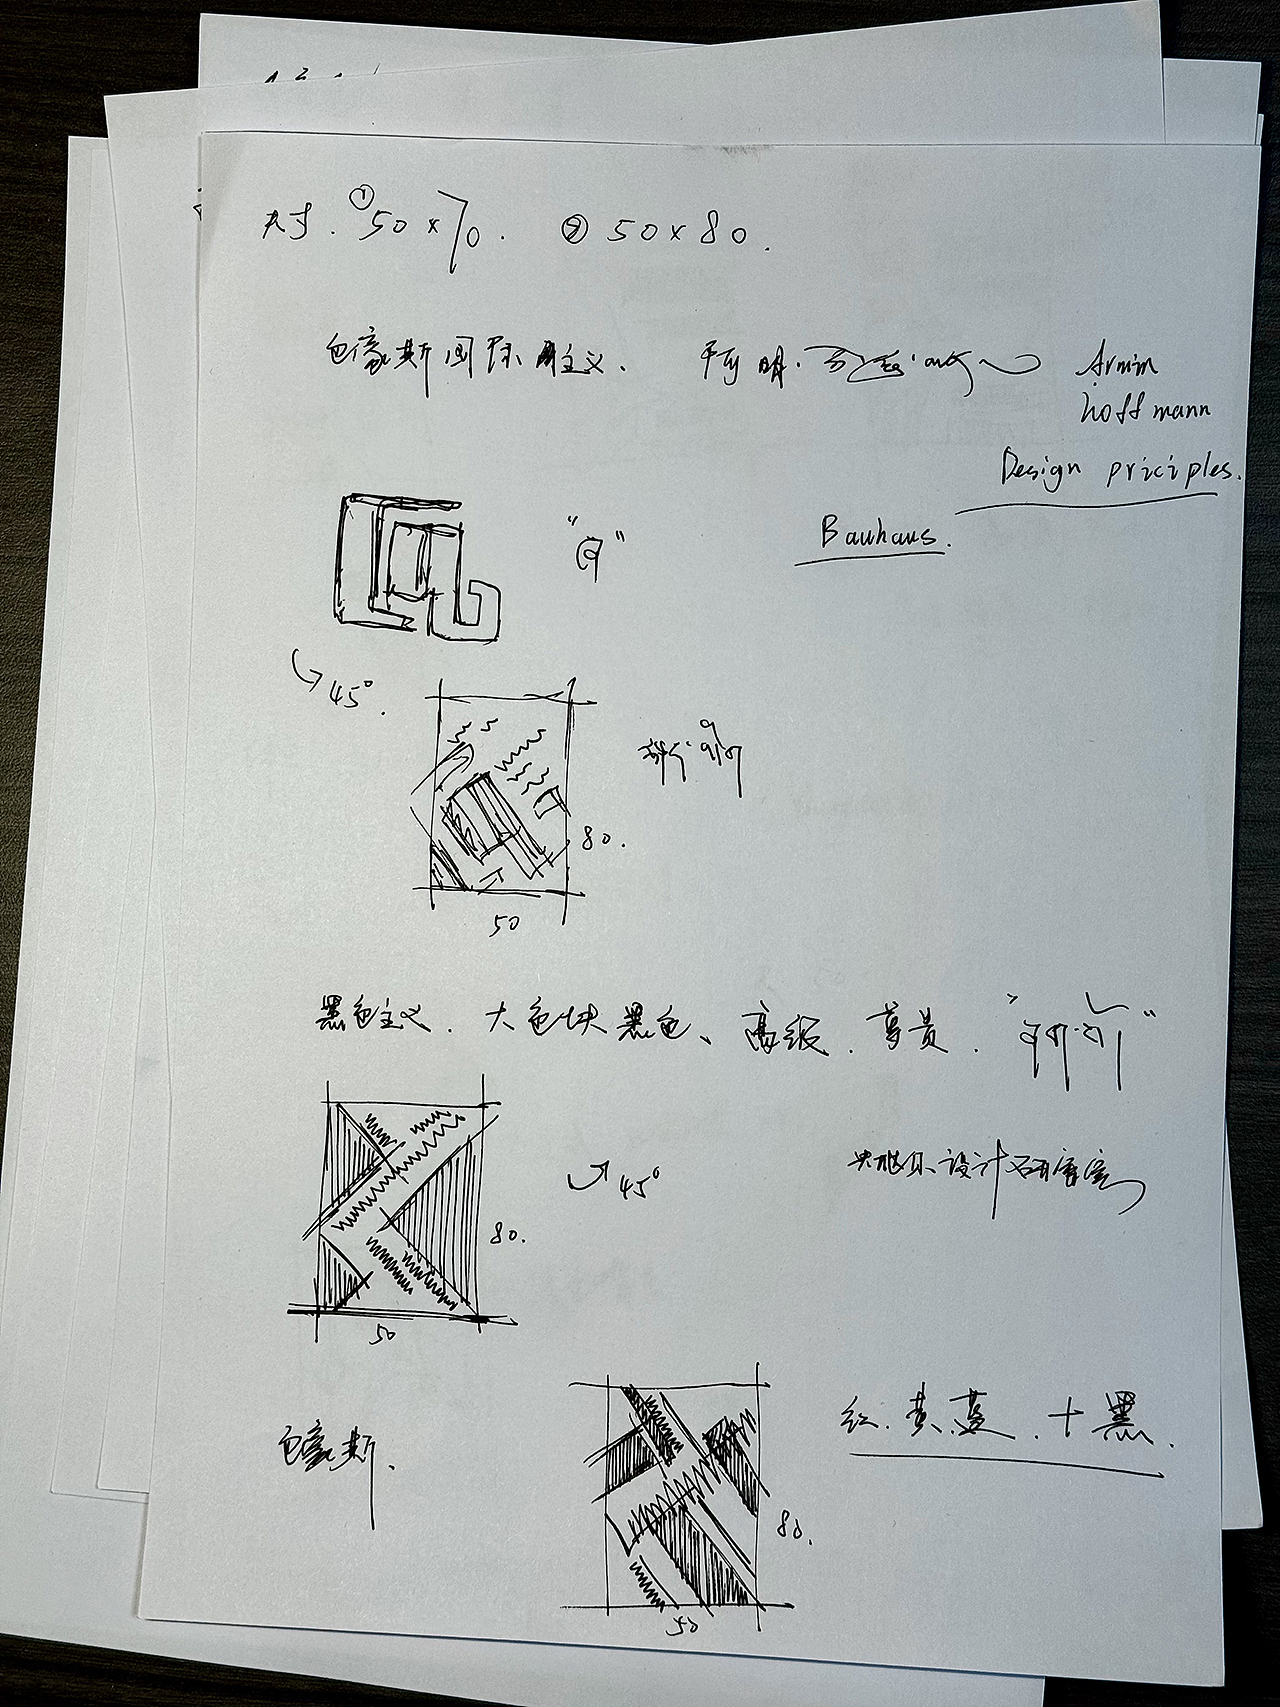 尺寸. ① 50 × 70. ② 50 × 80.
包豪斯国际主义.
Armin
hoffmann
Design priciples.
Bauhaus.
45°.
80.
50
黑色主义. 大色块黑色、高级. 尊贵.
45°
设计研究室
80.
50
包豪斯.
红. 黄. 蓝. + 黑.
80.
50